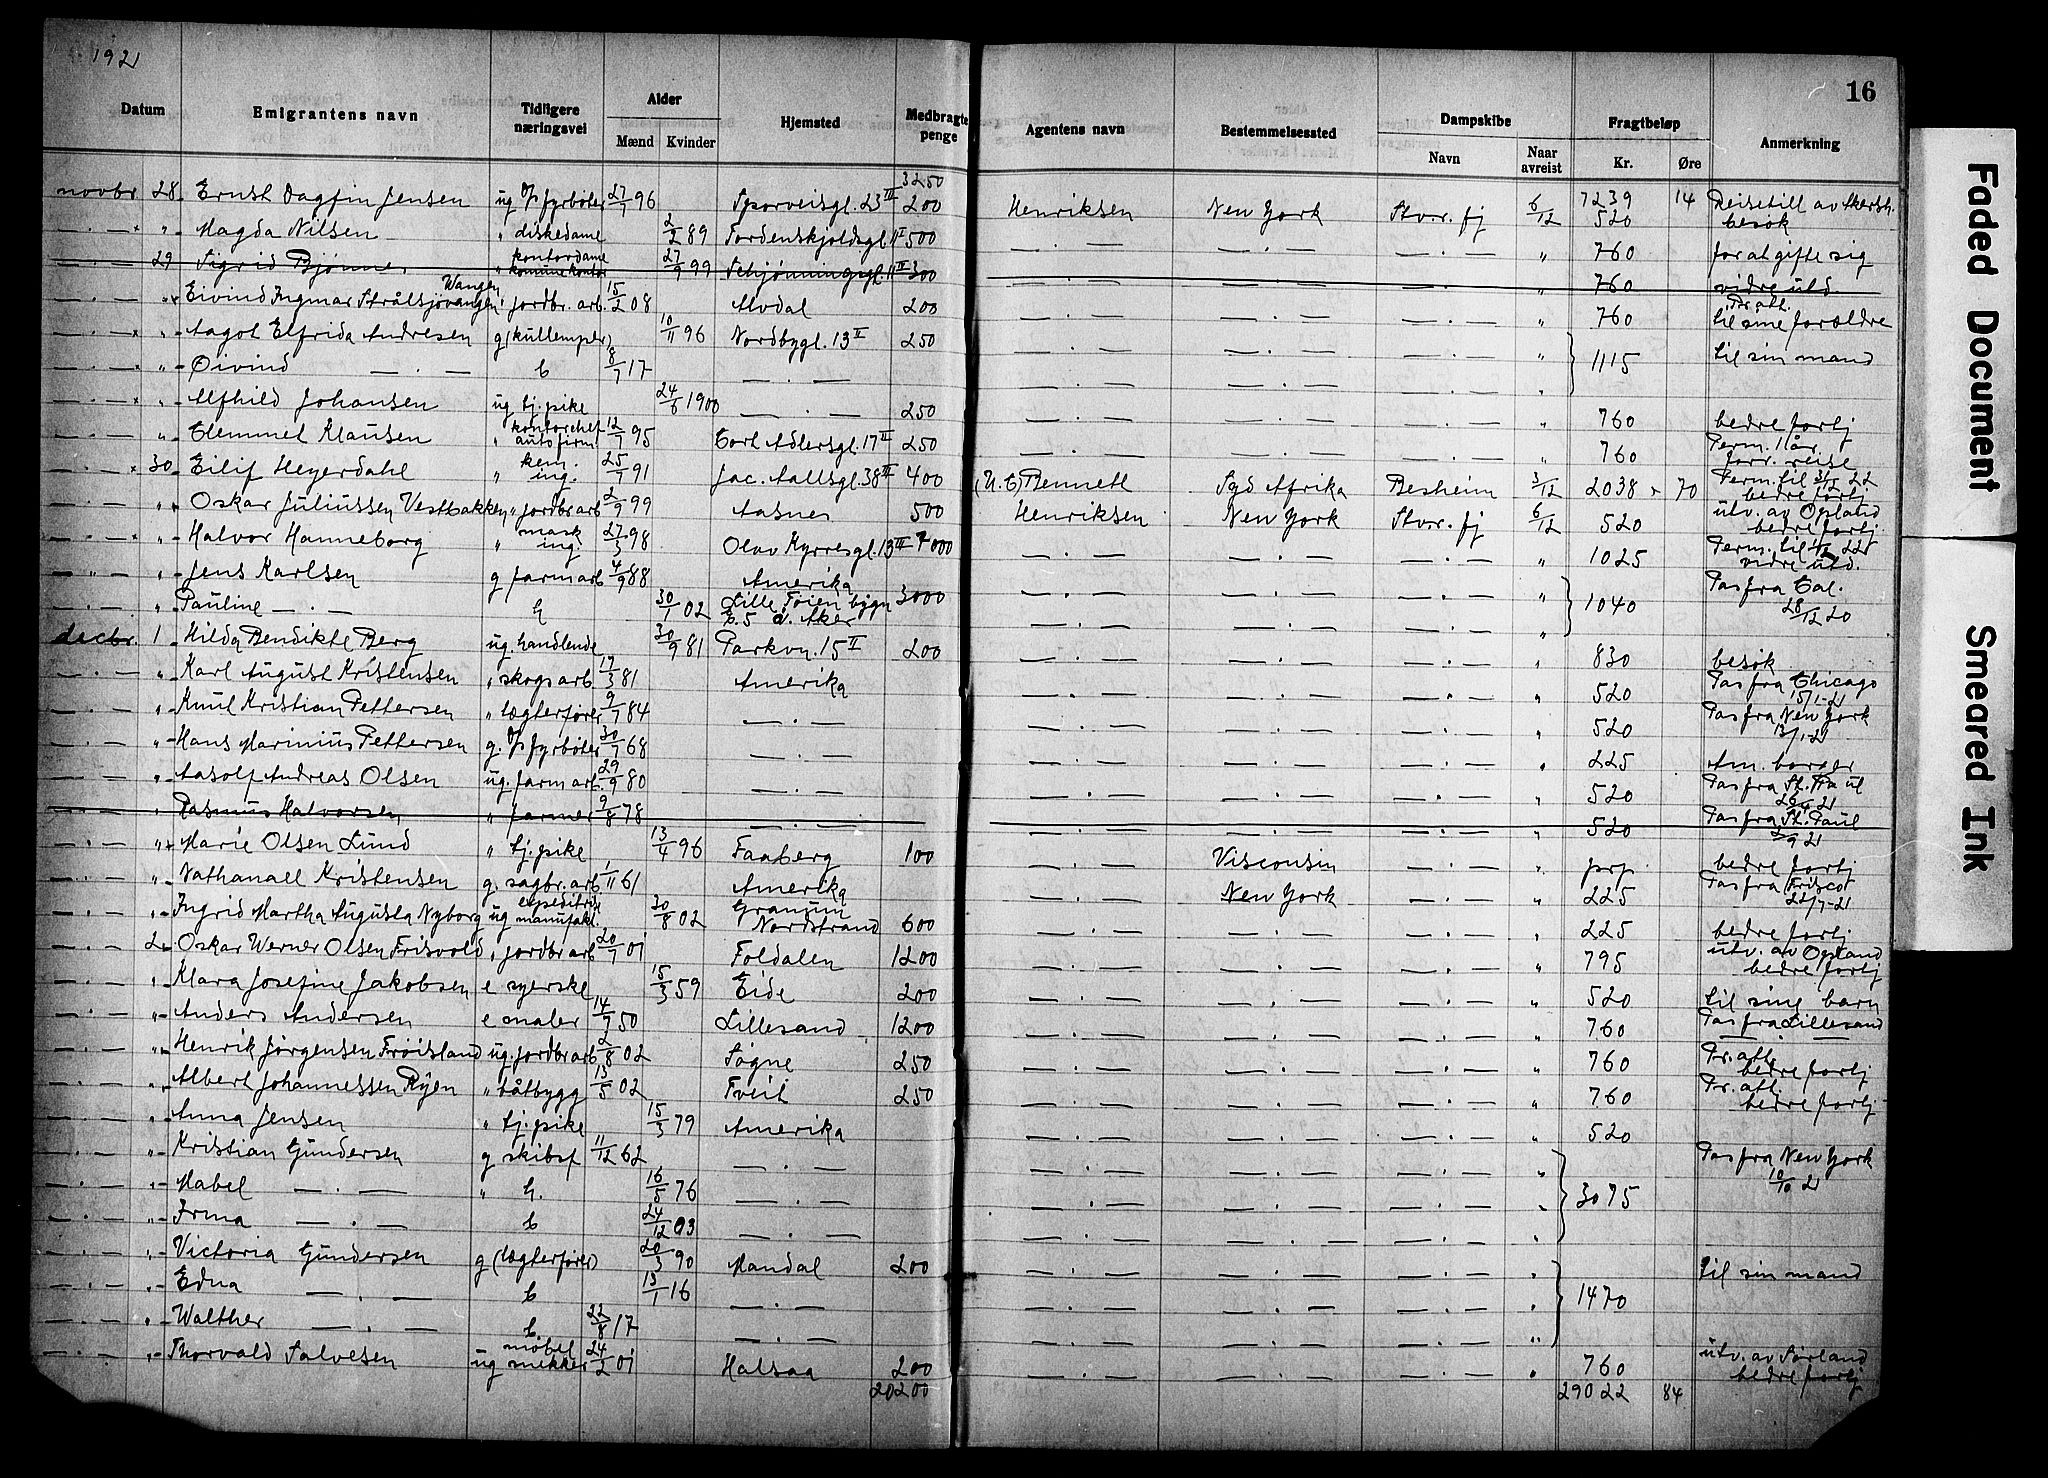 1921
16
Datum Emigrantens navn Tidligere næringsvei Alder Mænd Kvinder Hjemsted Medbragte penge Agentens navn Bestemmelsessted Dampskibe Navn Naar avreist Fragtbeløp Kr. Øre Anmerkning
3250
novbr 28 Ernst Dagfin Jensen ug fyrbøter 27/7 96 Sporveisgt. 23 III 200 Henriksen New York Stvr. fj 6/12 7239 14 520 Reisetill av Akersh. besøk
— . — " Magda Nilsen " diskedame 2/2 89 Tordenskjoldsgt 11 I 500 — . — — . — — . — " 760 for at gifte sig
— . — 29 Sigrid Bjønnes " kontordame kommunekontor 27/9 99 Schjønningsgt. 11 II 300 — . — — . — — . — " 760 vidre utd.
— . — " Eivind Ingmar Strålsjøvangen Wangen " jordbr. arb. 15/2 08 Alvdal 200 — . — — . — — . — " 760 Pr. att. til sine forældre
— . — " Aagot Elfrida Andresen g (kullemper) 10/11 96 Nordbygt. 13 II 250 — . — — . — — . — " 1115 til sin mand
— . — " Øivind — . — b 8/7 17 — . — — . — — . — — . — "
— . — " Alfhild Johansen ug tj. pike 24/6 1900 — . — 250 — . — — . — — . — " 760 bedre fortj
— . — " Clemmet Klausen " kontorchef autofirm. 12/7 95 Cort Adlersgt. 17 II 250 — . — — . — — . — " 760 Perm. 1 år forr. reise
— . — 30 Eilif Heyerdahl " kem. ing. 25/7 91 Jac. Aallsgt. 38 III 400 (U.C) Bennett Syd Afrika Besheim 3/12 2038 70 Perm. til 3/12 22 bedre fortj
— . — " Oskar Juliussen Vestbakken " jordbr arb 2/9 99 Aasnes 500 Henriksen New York Stvr. fj 6/12 520 utv. av Opland bedre fortj
— . — " Halvor Hanneborg " mask ing. 27/3 98 Olav Kyrresgt. 13 III 7000 — . — — . — — . — " 1025 Perm. til 1/12 22 vidre utd.
— " — " Jens Karlsen g farmarb 4/9 88 Amerika — . — — . — — . — " 1040 Pas fra Cal. 28/12 20
— . — " Pauline — . — h 30/1 02 Lille Tøien bygn 3000 — . — — . — — . — "
decbr. 1 Hilda Bendikte Berg ug. handlende 30/9 81 Parkvn. 15 II 200 — . — — . — — . — " 830 besøk
— . — " Karl August Kristensen " skogsarb 17/3 81 Amerika — . — — . — — . — " 520 Pas fra Chicago 15/1-21
— . — " Knut Kristian Pettersen " lægterfører 9/7 84 — . — — . — — . — — . — " 520 Pas fra New York 13/1-21
— . — " Hans Marinius Pettersen g. fyrbøter 30/7 68 — . — — . — — . — — . — " 225 Am. borger
— . — " Aasolf Andreas Olsen ug. farmarb. 29/9 80 — . — — . — — . — — . — " 520 Pas fra St. Paul 26/4 21
— . — " Rasmus Halvorsen " farmer 9/8 78 — . — — . — — . — — . — " 520 Pas fra St. Paul 2/9 21
— . — " Marie Olsen Lund " tj. pike 13/4 96 Faaberg 100 — . — Visconsin — . — " prp. bedre fortj
— . — " Nathanael Kristensen g. sagbr. arb 1/11 61 Amerika — . — New York — . — " 225 Pas fra Frisco 22/7-21
— . — " Ingrid Martha Augusta Nyborg ug expeditris manufakt. 30/8 02 Granum Nordstrand 600 — . — — . — — . — " 225 bedre fortj
— . — 2 Oskar Werner Olsen Frisvold " jordbr arb 20/7 01 Foldalen 1200 — . — — . — — . — " 795 utv. av Opland bedre fortj
— . — " Klara Josefine Jakobsen e syerske 15/3 59 Eide 200 — . — — . — — . — " 520 til sine barn
— . — " Anders Andersen e maler 14/7 50 Lillesand 1200 — . — — . — — . — " 760 Pas fra Lillesand
— . — " Henrik Jørgensen Frøisland ug. jordbr arb 2/8 02 Søgne 250 — . — — . — — . — " 760 Pr. att. bedre fortj
— . — " Albert Johannessen Ryen " båtbygg 13/5 02 Tveit 250 — . — — . — — . — " 760 Pr. att. bedre fortj
— . — " Anna Jensen " tj. pike 15/3 79 Amerika — . — — . — — . — " 520
— . — " Kristian Gundersen g skibsf 11/12 62 — . — — . — — . — — . — " 3075 Pas fra New York 10/10 21
— . — " Mabel — . — " h. 16/5 76 — . — — . — — . — — . — "
— . — " Irma — . — b 24/12 03 — . — — . — — . — — . — "
— . — " Victoria Gundersen g (lægterfører) 20/3 90 Mandal 200 — . — — . — — . — " 1470 til sin mand
— . — " Edna — . — b 13/1 16 — . — — . — — . — — . — "
— . — " Walther — . — b. 22/8 17 — . — — . — — . — — . — "
— . — " Thorvald Salvesen ug møbel snekker 24/2 01 Halsaa 200 — . — — . — — . — " 760 utv. av Sørland bedre fortj
20200 29022 84
Faded Document
Smeared Ink